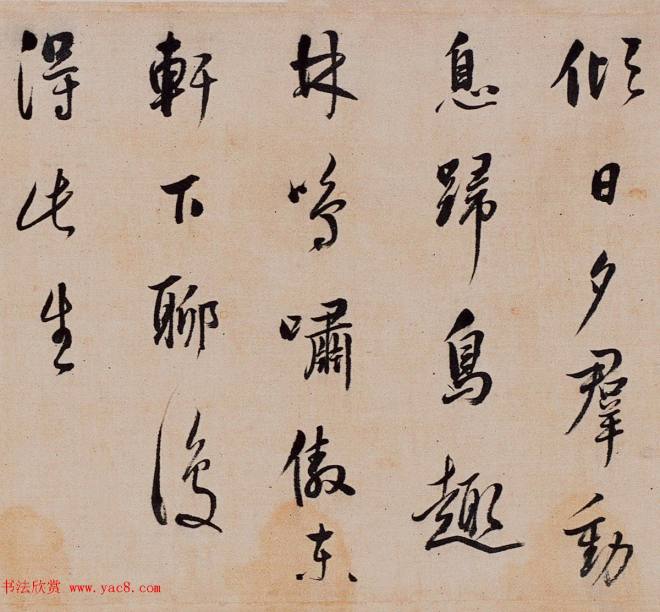 傾日夕羣動
息歸鳥趣
林鳴嘯傲东
軒下聊復
得此生
书法欣赏 www.yac8.com